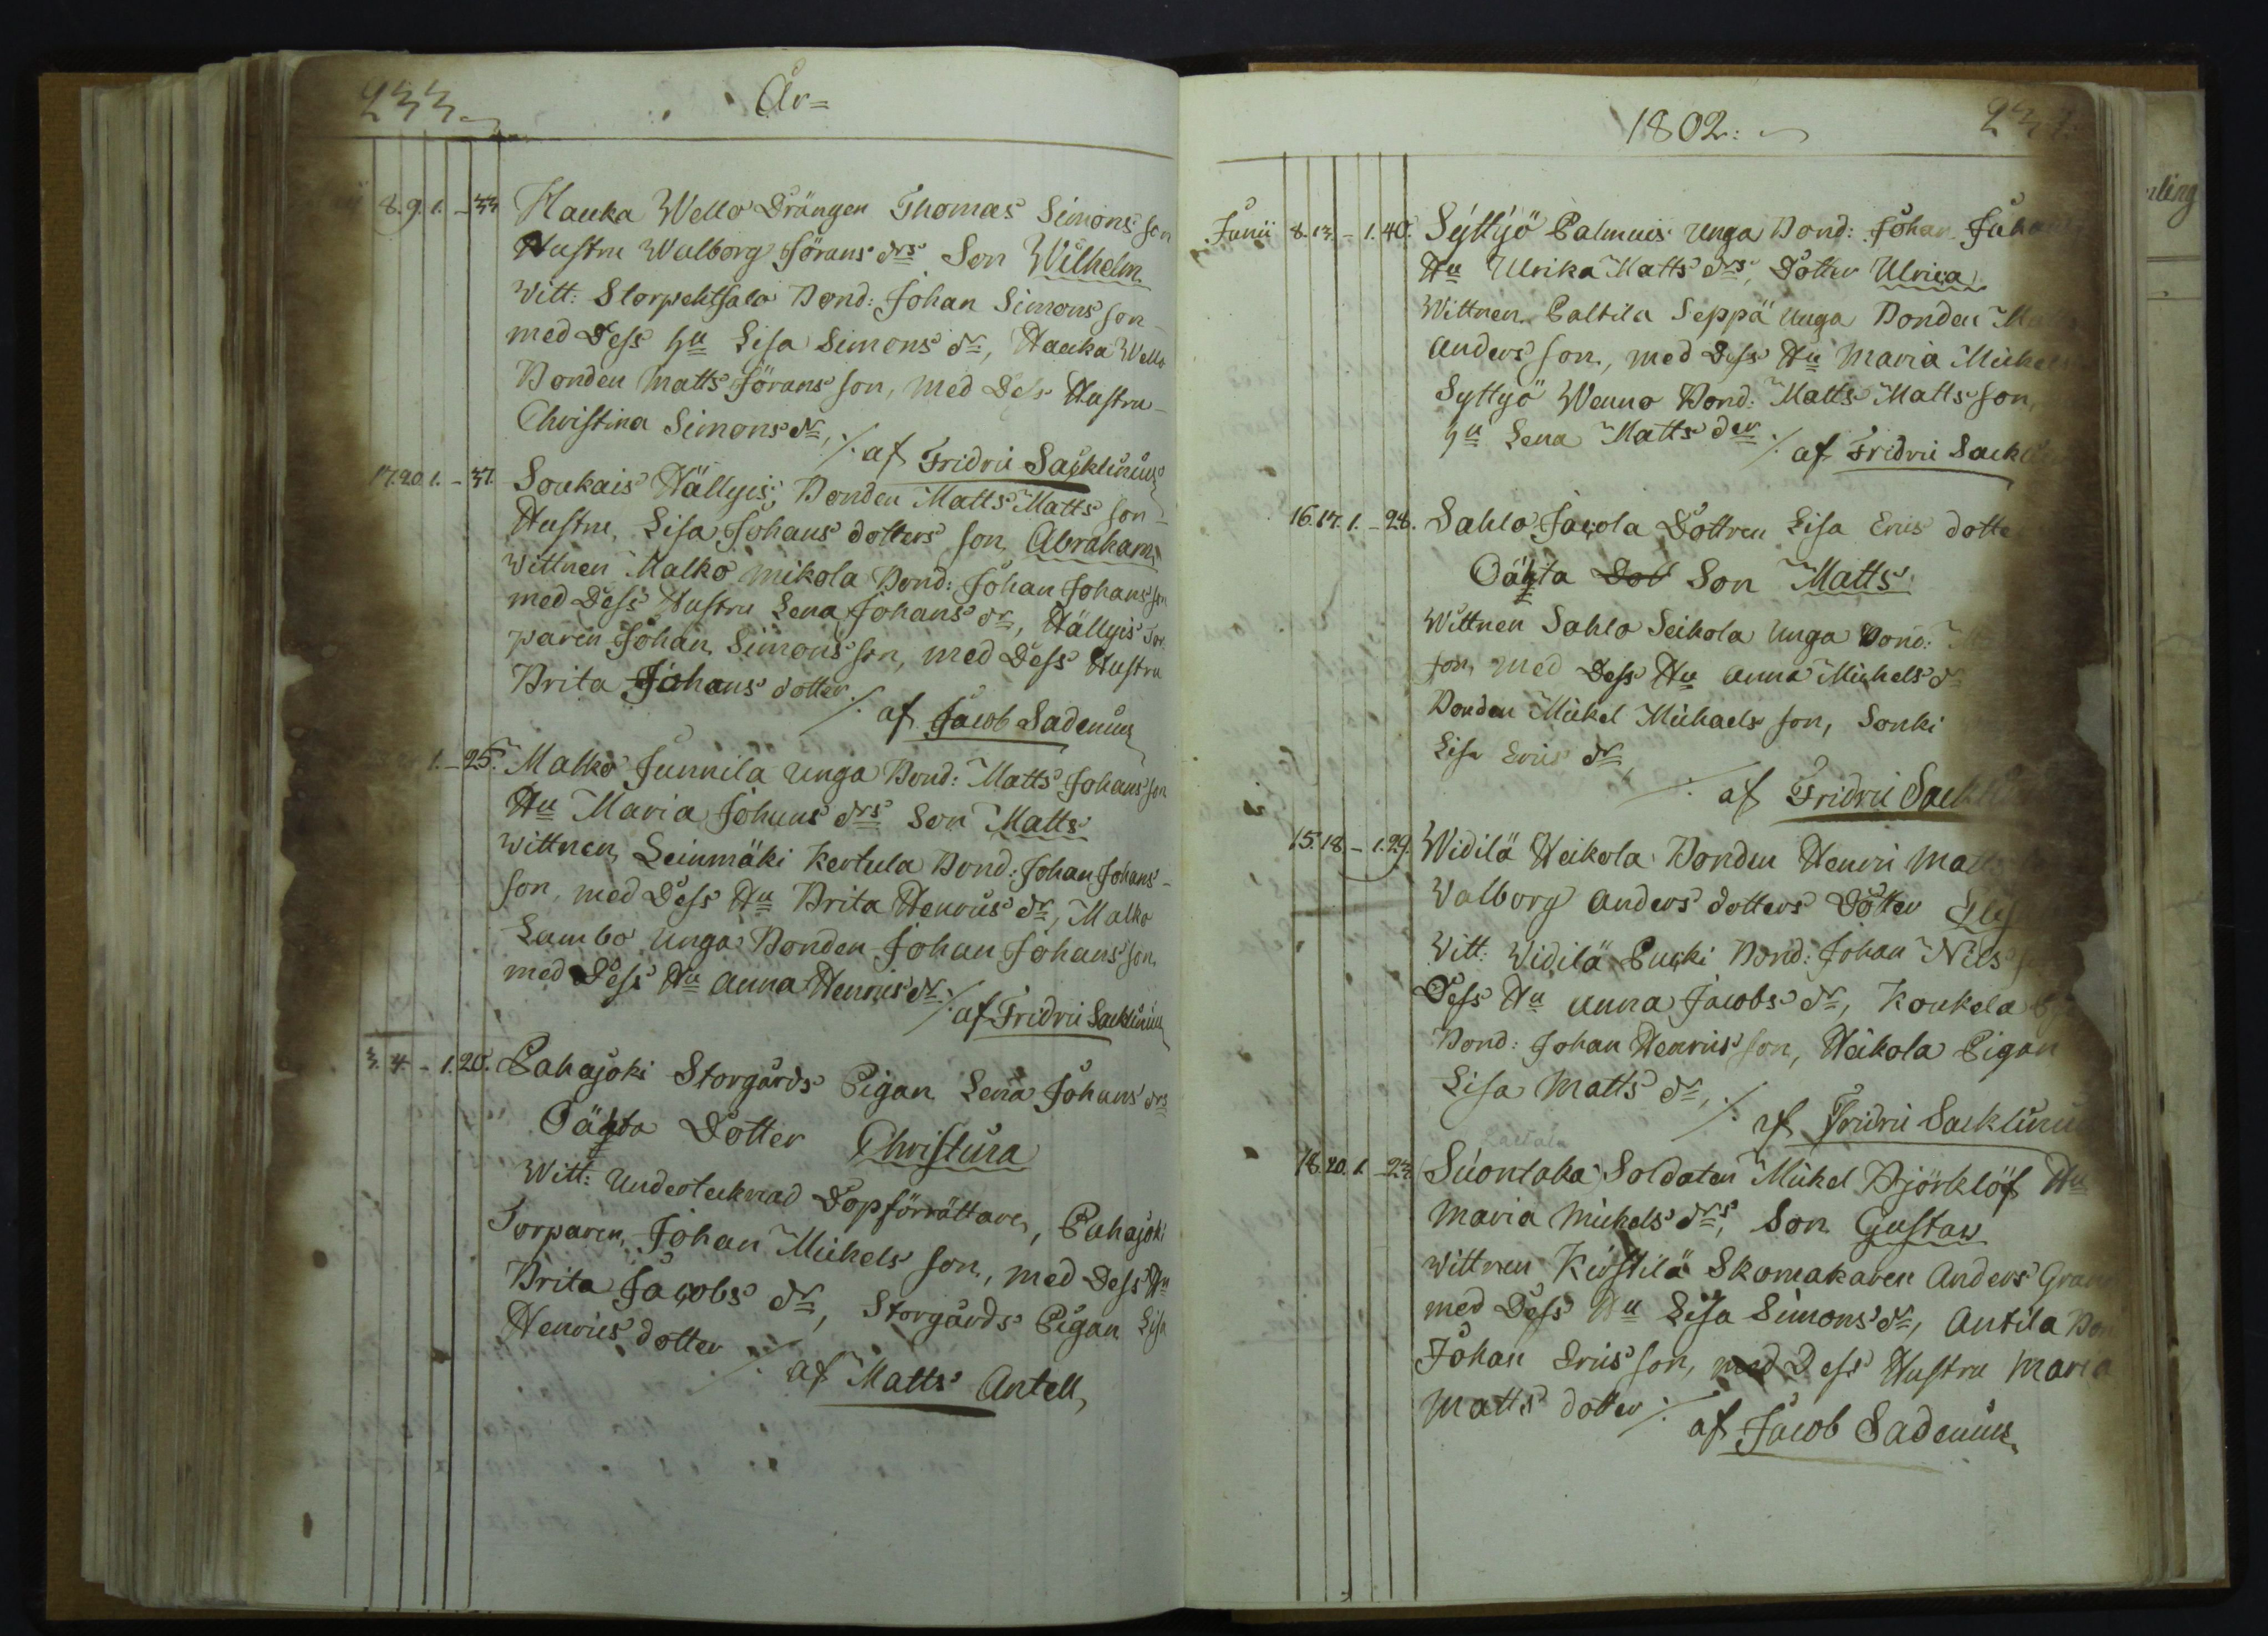 233.
År=
8. 9. 1. - 33
Hauka Wello Drängen Thomas Simons son
Hustru Walborg Jörans drs Son Wilhelm
Witt: Storpehtsalo Bond: Johan Simons son
med Dess hu Lisa Simons dr, Hauka Wello
Bonden Matts Jörans son, med Dess Hustru
Christina Simons dr, ./. af Fridric Sacklinius
17. 20. 1. - 37.
Soukais Hällyis, Bonden Matts Matts son
Hustru, Lisa Johans dotters son Abraham
Wittnen Malko Mikola Bond: Johan Johans son
med Dess Hustru Lena Johans dr, Hällyis Tor
paren Johan Simons son, med Dess Hustru
Brita Johans dotter ./. af Jacob Sadenius
1. - 25.
Malko Junnila Unga Bond: Matts Johans son
Hu Maria Johans drs Son Matts
Wittnen, Leinmäki Kertula Bond: Johan Johans
son, med Dess Hu Brita Henrics dr, Malko
Lambo Unga Bonden Johan Johans son
med Dess Hu Anna Henrics dr ./. af Fridric Sacklinius
3. 4. - 1. 20.
Pahajoki Storgårds Pigan Lena Johans drs
Oäkta Dotter Christina
Witt: Undertecknad Dopförrättare, Pahajoki
Torparen, Johan Michels son, med Dess Hu
Brita Jacobs dr, Storgårds Pigan Lisa
Henrics dotter ./. af Matts Antell,
1802:
Junii 8. 13. - 1. 40.
Syttyö Palmuis Unga Bond: Johan Johans
Hu Ulrika Matts drs, Dotter Ulrica
Wittnen Paltila Seppä Unga Bonden Matts
Anders son, med Dess Hu Maria Michels
Syttyö Wenno Bond: Matts Matts son,
hu Lena Matts der ./. af Fridric Sackli
16. 17. 1. - 28.
Sahlo Jacola Dottren Lisa Erics dotte
Oäkta Dott Son Matts
Wittnen Sahlo Seikola Unga Bond:
son, med Dess Hu Anna Michels dr
Bonden Mickel Michaels son, Sonki
Lisa Erics dr,
./. af Fridric Sackli
15. 18. - 1. 29.
Widilä Heikola Bonden Henric Matts
Valborg Anders dotters Dotter Lis
Witt: Widilä Pucki Bond: Johan Nils so
Dess Hu Anna Jacobs dr, Koukela
Bond: Johan Henrics son, Heikola Pigan
Lisa Matts dr, ./. af Fridric Sacklinius
18. 20. 1. - 23.
Suontaka Soldaten Mickel Björklöf Hu
Maria Michels drs, Son Gustaw
Wittnen Kirstilä Skomakaren Anders Gran
med Dess Hu Lisa Simons dr, Antila Bon
Johan Erics son, med Dess Hustru Maria
Matts dotter ./. af Jacob Sadenius